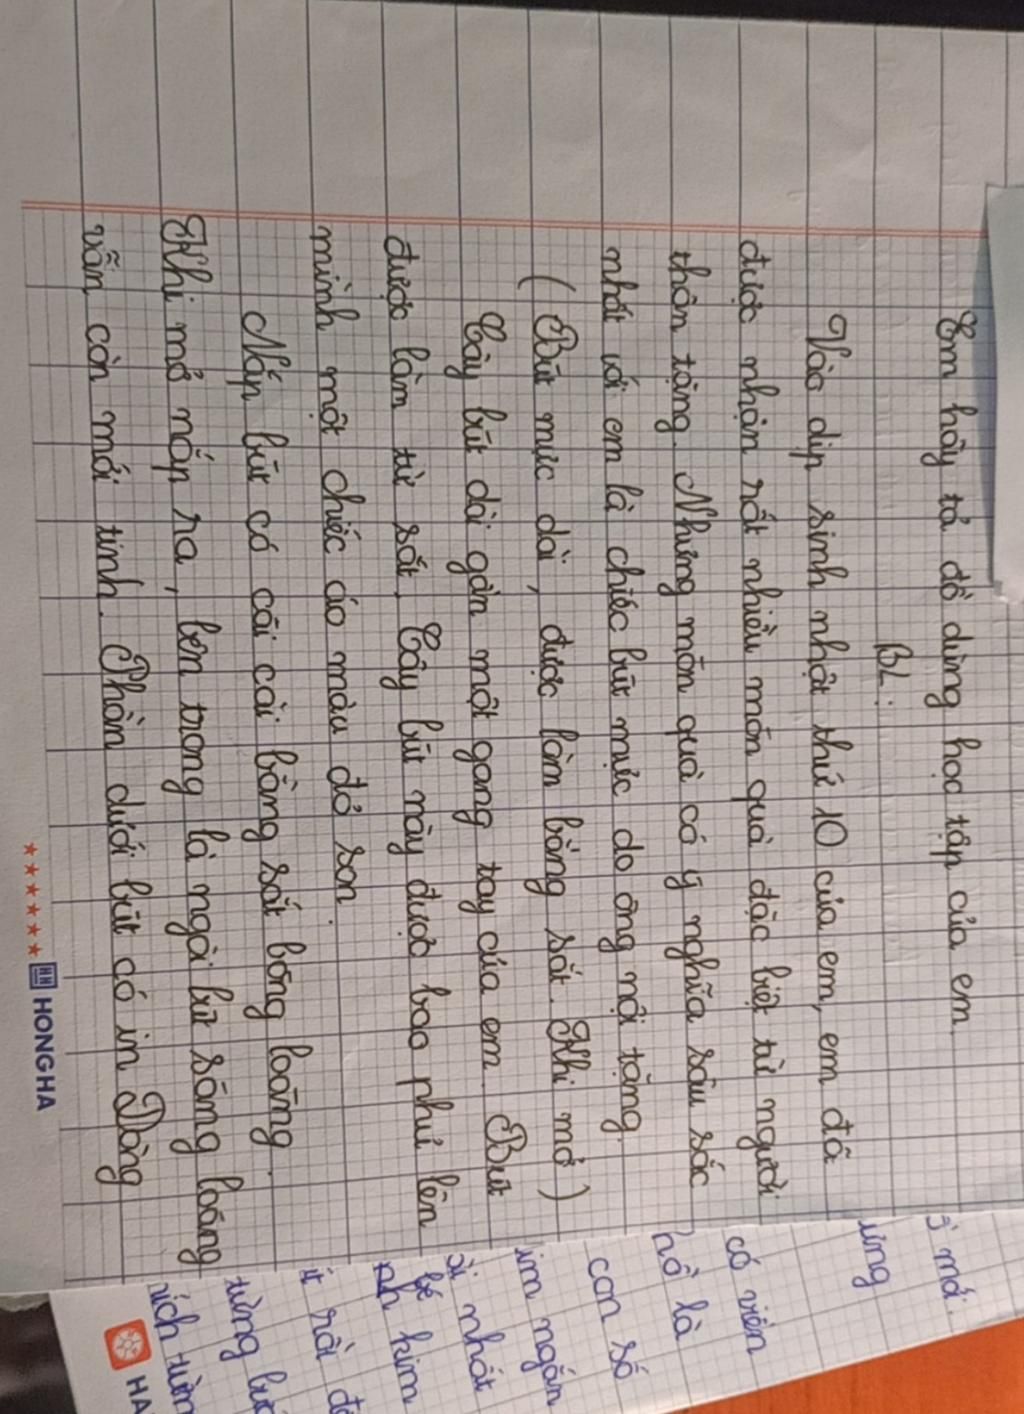 Em hãy tả đồ dùng học tập của em.
BL:
Vào dịp sinh nhật thứ 10 của em, em đã
được nhận rất nhiều món quà đặc biệt từ người
thân tặng. Những món quà có ý nghĩa sâu sắc
nhất với em là chiếc bút mực do ông nội tặng.
(Bút mực dài, được làm bằng sắt. Khi mở)
Cây bút dài gần một gang tay của em Bút
được làm từ sắt. Cây bút này được bao phủ lên
mình một chiếc áo màu đỏ son.
Nắp bút có cái cài bằng sắt bóng loáng.
Khi mở nắp ra, bên trong là ngòi bút sáng loáng
vẫn còn mới tinh. Phần dưới bút có in Dòng
HH HONGHA
ở mới
ưng
có viền
hồ là
con số
im ngắn
ài nhất
bé
nh kim
ít rồi đ
từng bư
ích từn
HA